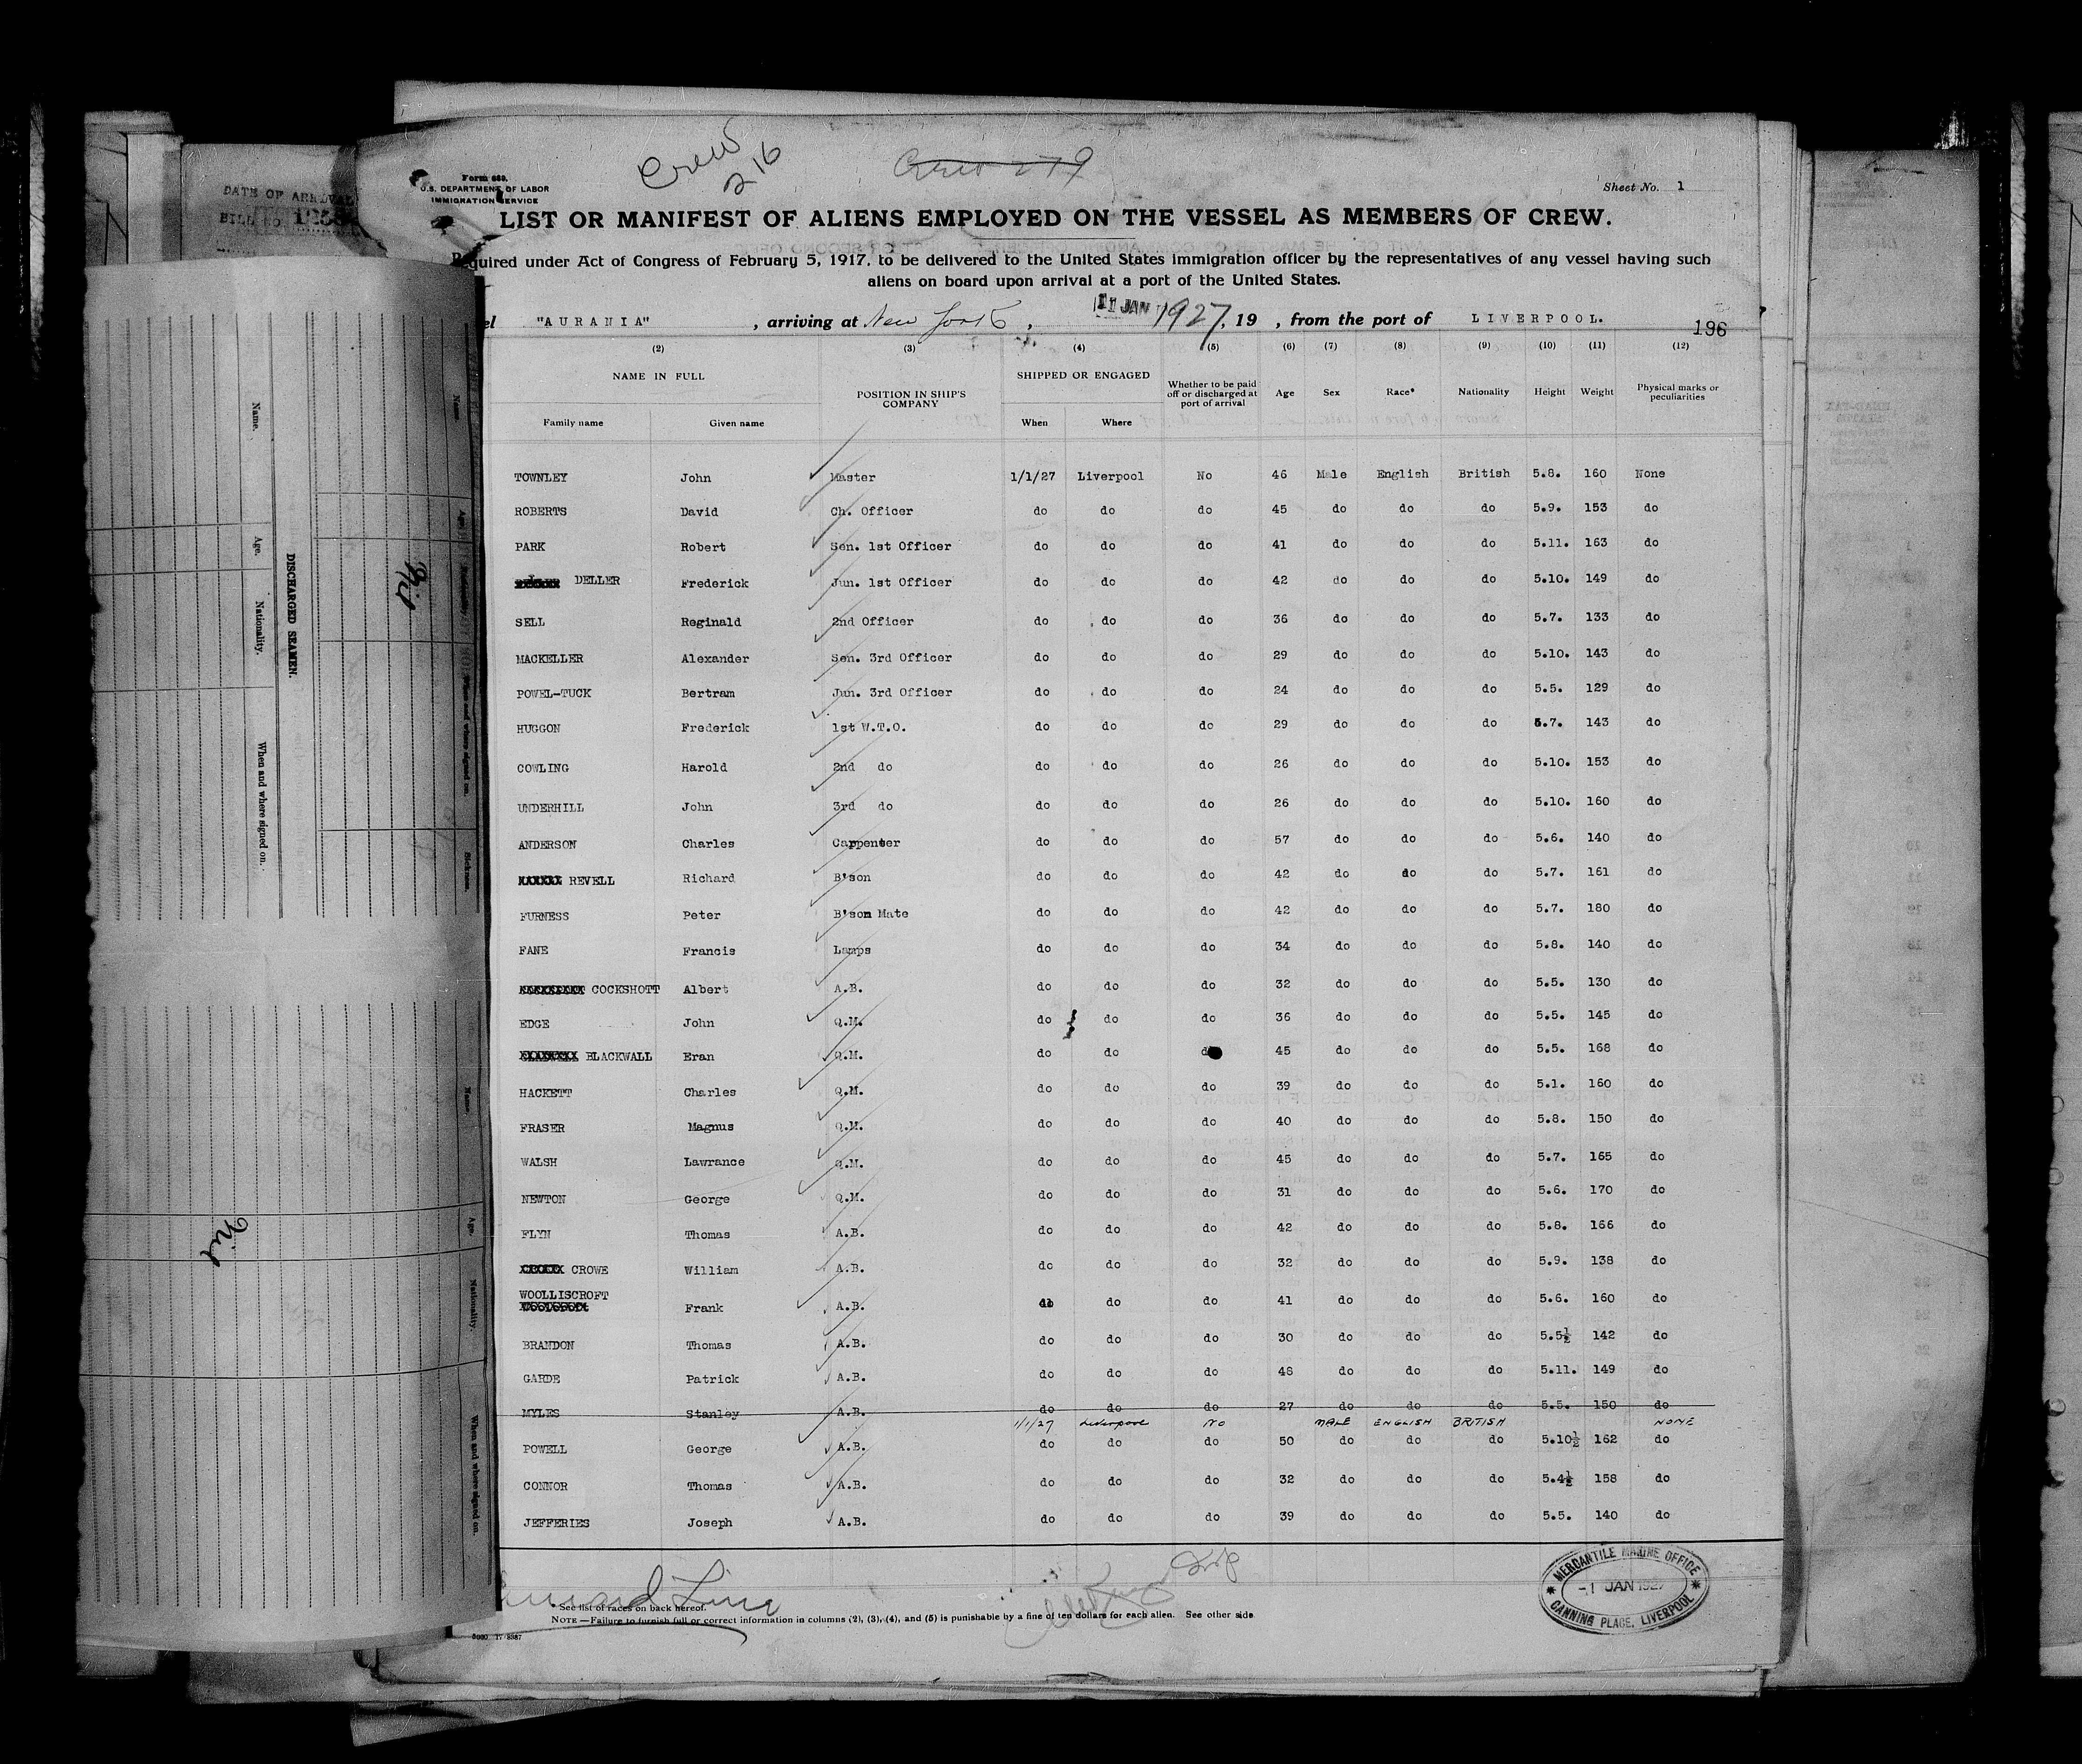 Crew 216
Crew 219
Form 689.
U.S. DEPARTMENT OF LABOR
IMMIGRATION SERVICE
Sheet No. 1
DATE OF ARRIVAL
BILL NO.
LIST OR MANIFEST OF ALIENS EMPLOYED ON THE VESSEL AS MEMBERS OF CREW.
Required under Act of Congress of February 5, 1917, to be delivered to the United States immigration officer by the representatives of any vessel having such
aliens on board upon arrival at a port of the United States.
el "AURANIA" , arriving at New York , 11 JAN 1927, 19 , from the port of LIVERPOOL.
196
(2) (3) (4) (5) (6) (7) (8) (9) (10) (11) (12)
NAME IN FULL POSITION IN SHIP'S COMPANY SHIPPED OR ENGAGED Whether to be paid off or discharged at port of arrival Age Sex Race* Nationality Height Weight Physical marks or peculiarities
Family name Given name When Where
TOWNLEY John Master 1/1/27 Liverpool No 46 Male English British 5.8. 160 None
ROBERTS David Ch. Officer do do do 45 do do do 5.9. 153 do
PARK Robert Sen. 1st Officer do do do 41 do do do 5.11. 163 do
DELLER Frederick Jun. 1st Officer do do do 42 do do do 5.10. 149 do
SELL Reginald 2nd Officer do do do 36 do do do 5.7. 133 do
MACKELLER Alexander Sen. 3rd Officer do do do 29 do do do 5.10. 143 do
POWEL-TUCK Bertram Jun. 3rd Officer do do do 24 do do do 5.5. 129 do
HUGGON Frederick 1st W.T.O. do do do 29 do do do 5.7. 143 do
COWLING Harold 2nd do do do do 26 do do do 5.10. 153 do
UNDERHILL John 3rd do do do do 26 do do do 5.10. 160 do
ANDERSON Charles Carpenter do do do 57 do do do 5.6. 140 do
REVELL Richard B'son do do do 42 do do do 5.7. 161 do
FURNESS Peter B'son Mate do do do 42 do do do 5.7. 180 do
FANE Francis Lamps do do do 34 do do do 5.8. 140 do
COCKSHOTT Albert A.B. do do do 32 do do do 5.5. 130 do
EDGE John Q.M. do do do 36 do do do 5.5. 145 do
BLACKWALL Eran Q.M. do do do 45 do do do 5.5. 168 do
HACKETT Charles Q.M. do do do 39 do do do 5.1. 160 do
FRASER Magnus Q.M. do do do 40 do do do 5.8. 150 do
WALSH Lawrance Q.M. do do do 45 do do do 5.7. 165 do
NEWTON George Q.M. do do do 31 do do do 5.6. 170 do
FLYN Thomas A.B. do do do 42 do do do 5.8. 166 do
CROWE William A.B. do do do 32 do do do 5.9. 138 do
WOOLLISCROFT Frank A.B. do do do 41 do do do 5.6. 160 do
BRANDON Thomas A.B. do do do 30 do do do 5.5½ 142 do
GARDE Patrick A.B. do do do 48 do do do 5.11. 149 do
MYLES Stanley A.B. do do do 27 do do do 5.5. 150 do
1/1/27 Liverpool NO MALE ENGLISH BRITISH NONE
POWELL George A.B. do do do 50 do do do 5.10½ 162 do
CONNOR Thomas A.B. do do do 32 do do do 5.4½ 158 do
JEFFERIES Joseph A.B. do do do 39 do do do 5.5. 140 do
Cunard Line
* See list of races on back hereof.
NOTE.—Failure to furnish full or correct information in columns (2), (3), (4), and (5) is punishable by a fine of ten dollars for each alien. See other side
MERCANTILE MARINE OFFICE
-1 JAN 1927
CANNING PLACE, LIVERPOOL
DISCHARGED SEAMEN.
Name. Age. Nationality. When and where signed on.
Name. Age. Nationality. When and where signed on. Sickness.
Nil
Name. Age. Nationality. When and where signed on.
Nil